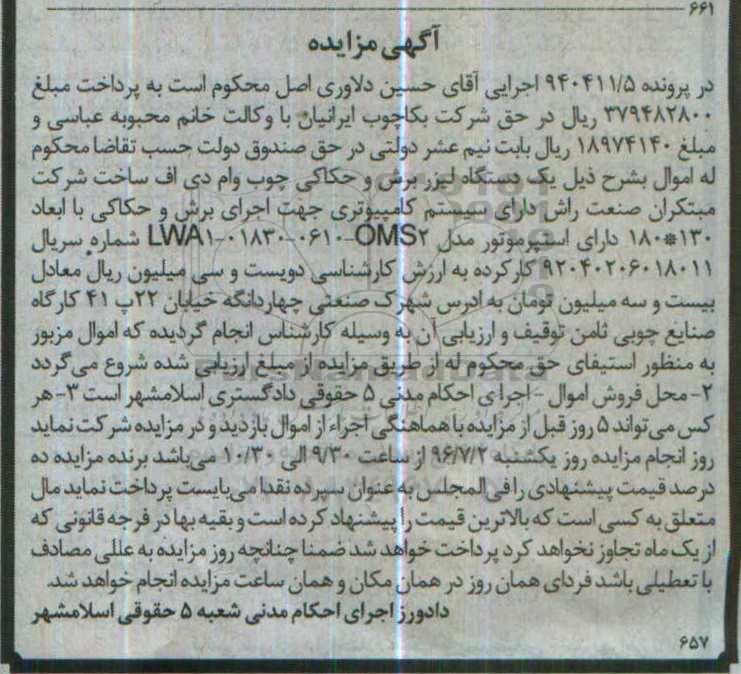 ۶۶۱
آگهی مزایده
در پرونده ۹۴۰۴۱۱/۵ اجرایی آقای حسین دلاوری اصل محکوم است به پرداخت مبلغ
۳۷۹۴۸۲۸۰۰ ریال در حق شرکت بکاچوب ایرانیان با وکالت خانم محبوبه عباسی و
مبلغ ۱۸۹۷۴۱۴۰ ریال بابت نیم عشر دولتی در حق صندوق دولت حسب تقاضا محکوم
له اموال بشرح ذیل یک دستگاه لیزر برش و حکاکی چوب وام دی اف ساخت شرکت
مبتکران صنعت راش دارای سیستم کامپیوتری جهت اجرای برش و حکاکی با ابعاد
۱۳۰*۱۸۰ دارای استپرموتور مدل LWA۱-۰۱۸۳۰-۰۶۱۰-OMS۲ شماره سریال
۹۲۰۴۰۲۰۶۰۱۸۰۱۱ کارکرده به ارزش کارشناسی دویست و سی میلیون ریال معادل
بیست و سه میلیون تومان به ادرس شهرک صنعتی چهاردانگه خیابان ۲۲پ ۴۱ کارگاه
صنایع چوبی ثامن توقیف و ارزیابی آن به وسیله کارشناس انجام گردیده که اموال مزبور
به منظور استیفای حق محکوم له از طریق مزایده از مبلغ ارزیابی شده شروع می‌گردد
۲- محل فروش اموال - اجرای احکام مدنی ۵ حقوقی دادگستری اسلامشهر است ۳- هر
کس می‌تواند ۵ روز قبل از مزایده با هماهنگی اجراء از اموال بازدید و در مزایده شرکت نماید
روز انجام مزایده روز یکشنبه ۹۶/۷/۲ از ساعت ۹/۳۰ الی ۱۰/۳۰ می‌باشد برنده مزایده ده
درصد قیمت پیشنهادی را فی‌المجلس به عنوان سپرده نقدا می‌بایست پرداخت نماید مال
متعلق به کسی است که بالاترین قیمت را پیشنهاد کرده است و بقیه بها در فرجه قانونی که
از یک ماه تجاوز نخواهد کرد پرداخت خواهد شد ضمنا چنانچه روز مزایده به عللی مصادف
با تعطیلی باشد فردای همان روز در همان مکان و همان ساعت مزایده انجام خواهد شد.
دادورز اجرای احکام مدنی شعبه ۵ حقوقی اسلامشهر
۶۵۷
ParsNamadData